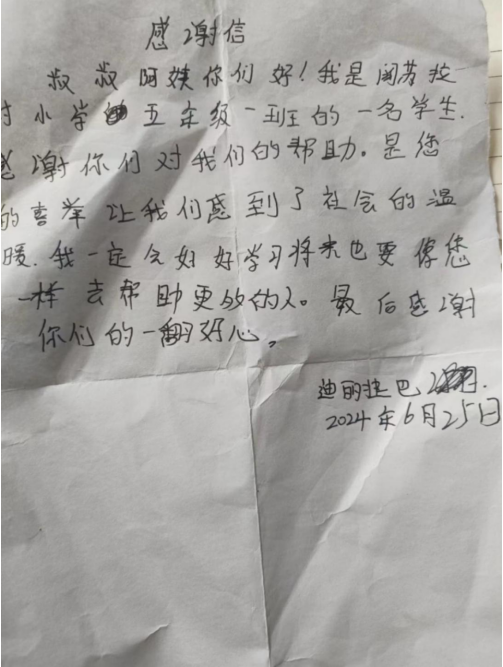 感谢信
叔叔阿姨你们好!我是闰苏拉
村小学五年级一班的一名学生.
感谢你们对我们的帮助。是您
的喜举让我们感到了社会的温
暖.我一定会好好学习将来也要像您
一样去帮助更多的人。最后感谢
你们的一翻好心。
迪丽拉巴
2024年6月25日